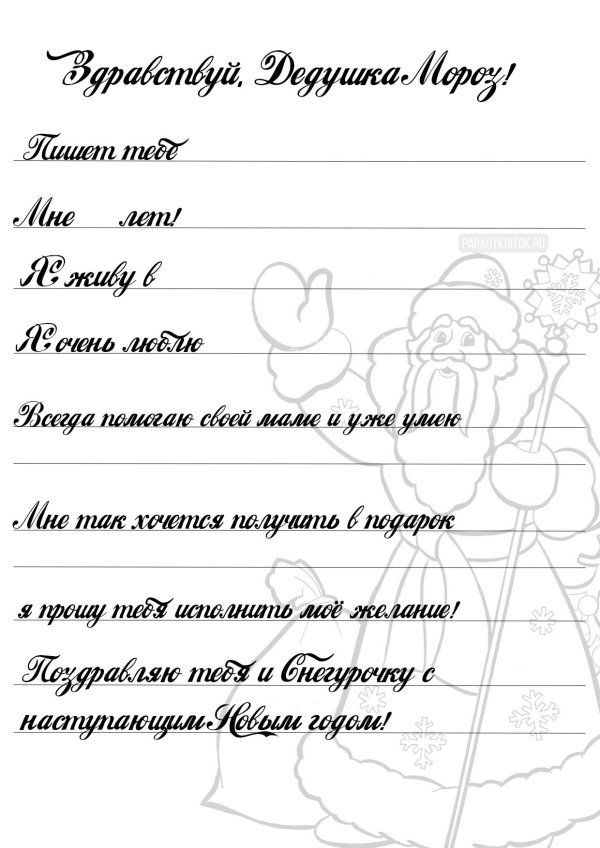 Здравствуй, Дедушка Мороз!
Пишет тебе
Мне лет!
PARKOTKRITOK.RU
Я живу в
Я очень люблю
Всегда помогаю своей маме и уже умею
Мне так хочется получить в подарок
я прошу тебя исполнить моё желание!
Поздравляю тебя и Снегурочку с
наступающим Новым годом!